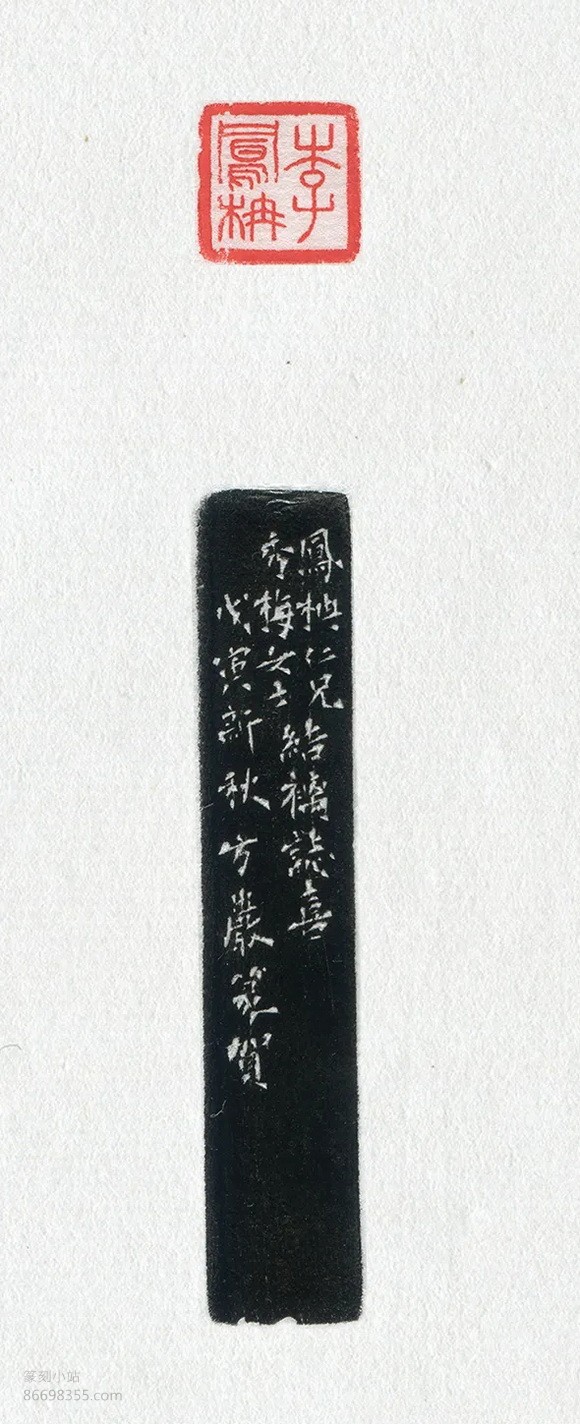 李鳳柟
鳳柟仁兄
秀梅女士
結褵誌喜
戊寅新秋方巖篆賀
篆刻小站
86698355.com